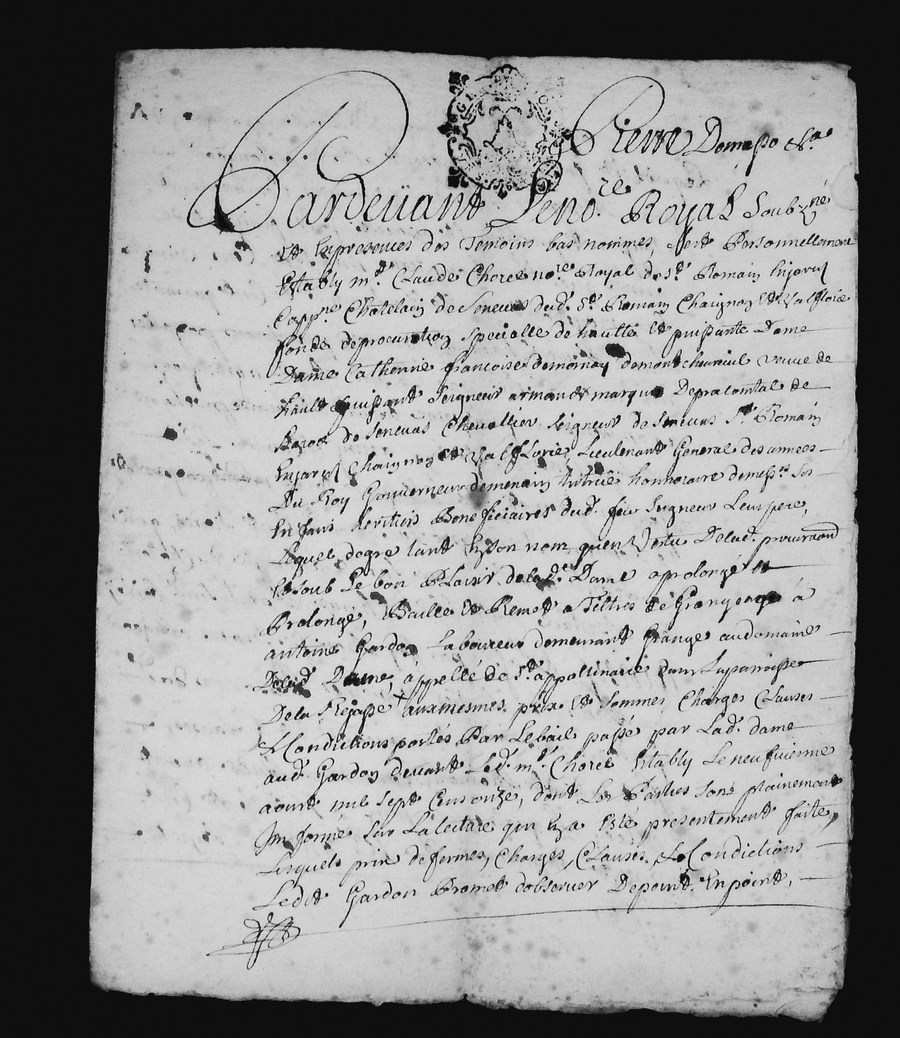 Pierre
Pardeuant Le no.re Royal Soubz.né
Et En presences des Temoins bas nommes, Personnellement
Estably m.e Claude Choree no.re Royal de St. Romain En Jarez
Chatelain de Seneuas dud. St. Romain Chaignon et Val florie
fondé de procuration Specialle de haulte Et puissante Dame
Dame Catherine françoise demornay demontcheureuil veuue de
hault Et puissant Seigneur armand marquis Depracomtal de
de Seneuas Cheuallier Seigneur de Seneuas St. Romain
En Jarez Chaignon Et Val Florie Lieutenant General des armées
Du Roy Gouuerneur demenain tutrice honnoraire demess.rs Ses
Enfans heritiers Beneficiaires dud. feu Seigneur Leur pere,
Lequel degre tant En Son nom qu'en Vertu Delad. procuraon
Et soub Le bon Plaisir delad. Dame a prolongé Et
Prolonge, Baille Et Remet a Tiltres de Grangeage à
antoine Gardon Laboureur demeurant Granger au domaine
Delad. Dame, appellé de St. appollinaire dans La parroisse
De la Rejasse aux mesmes prix Et Sommes Charges Clauses
& Condictions portés Par Le bail passé par Lad. dame
aud. Gardon deuant Led. m.e Choree Estably Le neufuienne
aoust mil Sept Cens onze, dont Les Parties Sons plainement
Informée Sur La lecture qui En a Esté presentement faite,
Lesquels prix de fermes, Charges, Clauses, & Condictions
Ledit Gardon Promet d'obseruer De point En point,